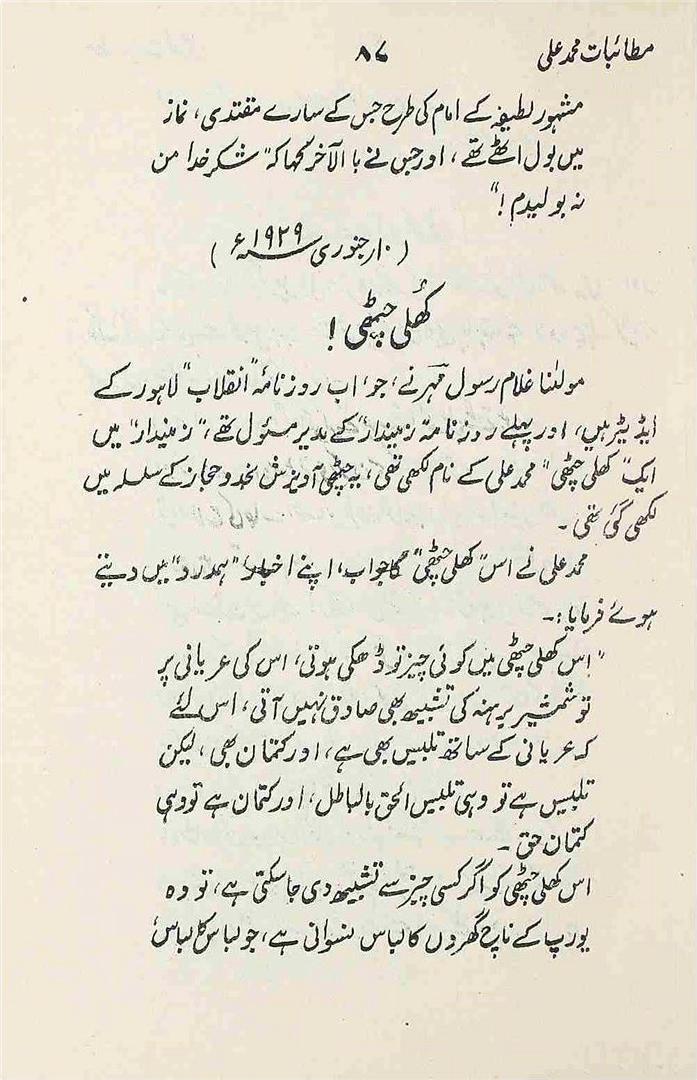 مطائبات محمد علی
۸۷
مشہور لطیفہ کے امام کی طرح جس کے سارے مقتدی، نماز
میں بول اٹھے تھے، اور جس نے بالآخر کہا کہ "شکر خدا من
نہ بولیدم!"
(۱۰ر جنوری ۱۹۲۹ء)
کھُلی چٹھی!
مولٰنا غلام رسول مہر نے، جو اب روزنامہ "انقلاب" لاہور کے
ایڈیٹر ہیں، اور پہلے روزنامۂ "زمیندار" کے مدیر مسئول تھے، "زمیندار" میں
ایک "کھلی چٹھی" محمد علی کے نام لکھی تھی، یہ چٹھی آویزش نجد و حجاز کے سلسلہ میں
لکھی گئی تھی۔
محمد علی نے اس "کھلی چٹھی" کا جواب، اپنے اخبار "ہمدرد" میں دیتے
ہوئے فرمایا:۔
"اِس کھلی چٹھی میں کوئی چیز تو ڈھکی ہوتی، اس کی عریانی پر
تو شمشیر برہنہ کی تشبیہ بھی صادق نہیں آتی، اس لئے
کہ عریانی کے ساتھ تلبیس بھی ہے، اور کتمان بھی، لیکن
تلبیس ہے تو وہی تلبیس الحق بالباطل، اور کتمان ہے تو وہی
کتمان حق۔
اس کھلی چٹھی کو اگر کسی چیز سے تشبیہ دی جا سکتی ہے، تو وہ
یورپ کے ناچ گھروں کا لباس نسوانی ہے، جو لباس کا لباس'